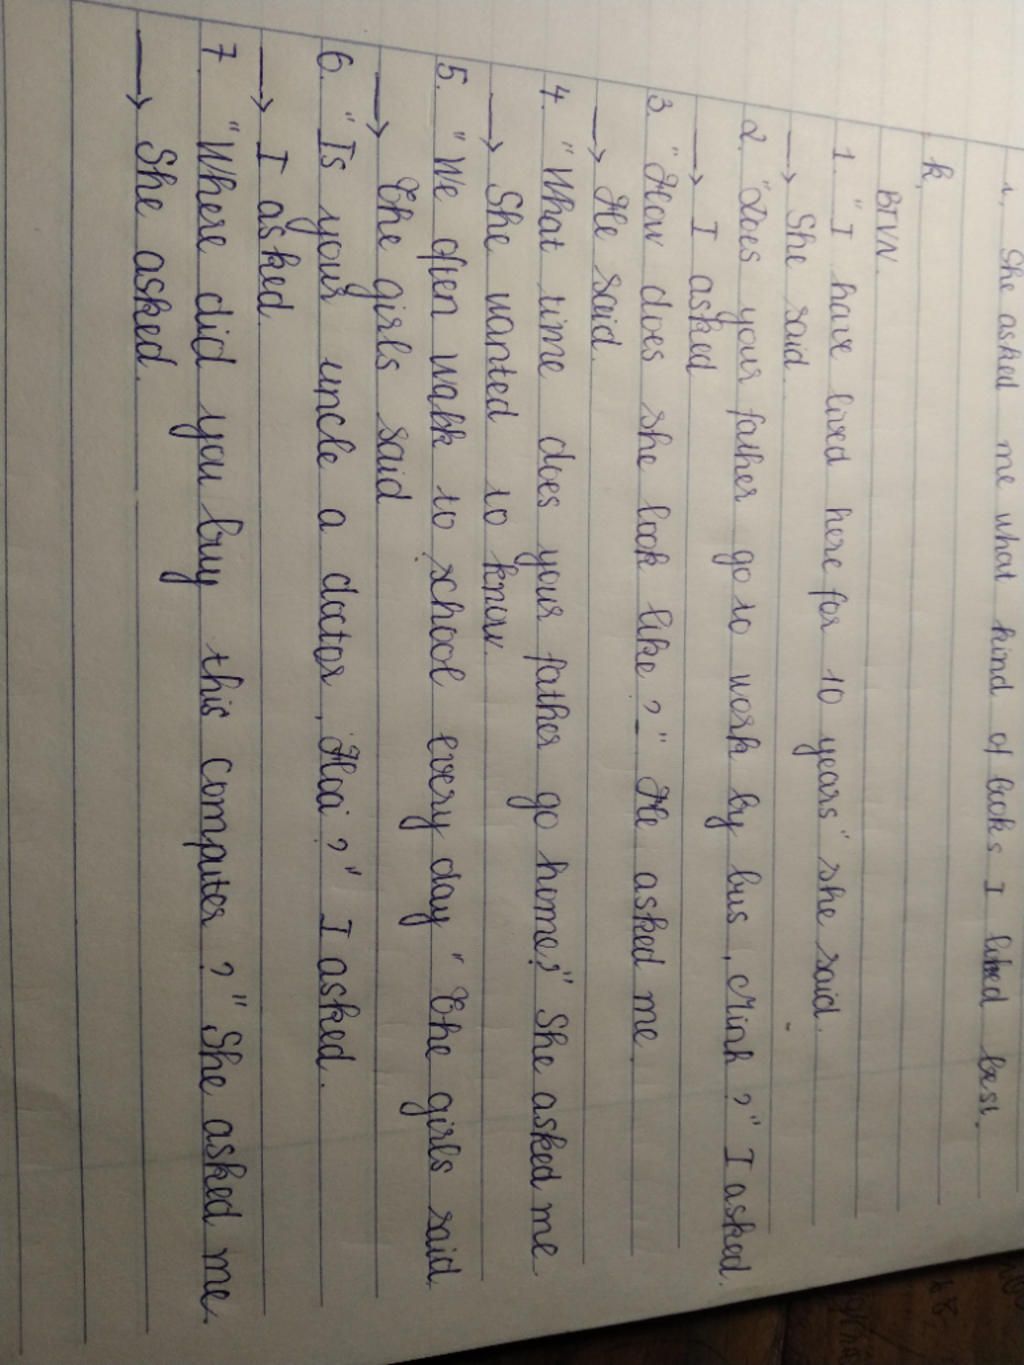 i, She asked me what kind of books I liked best.
k,
BTVN.
1. "I have lived here for 10 years" she said.
→ She said
2. "Does your father go to work by bus, Minh?" I asked.
→ I asked
3. "How does she look like?" He asked me.
→ He said.
4. "What time does your father go home?" She asked me
→ She wanted to know.
5. "We often walk to school every day" The girls said
→ The girls said
6. "Is your uncle a doctor, Hoa?" I asked.
→ I asked.
7. "Where did you buy this computer?" She asked me.
→ She asked.